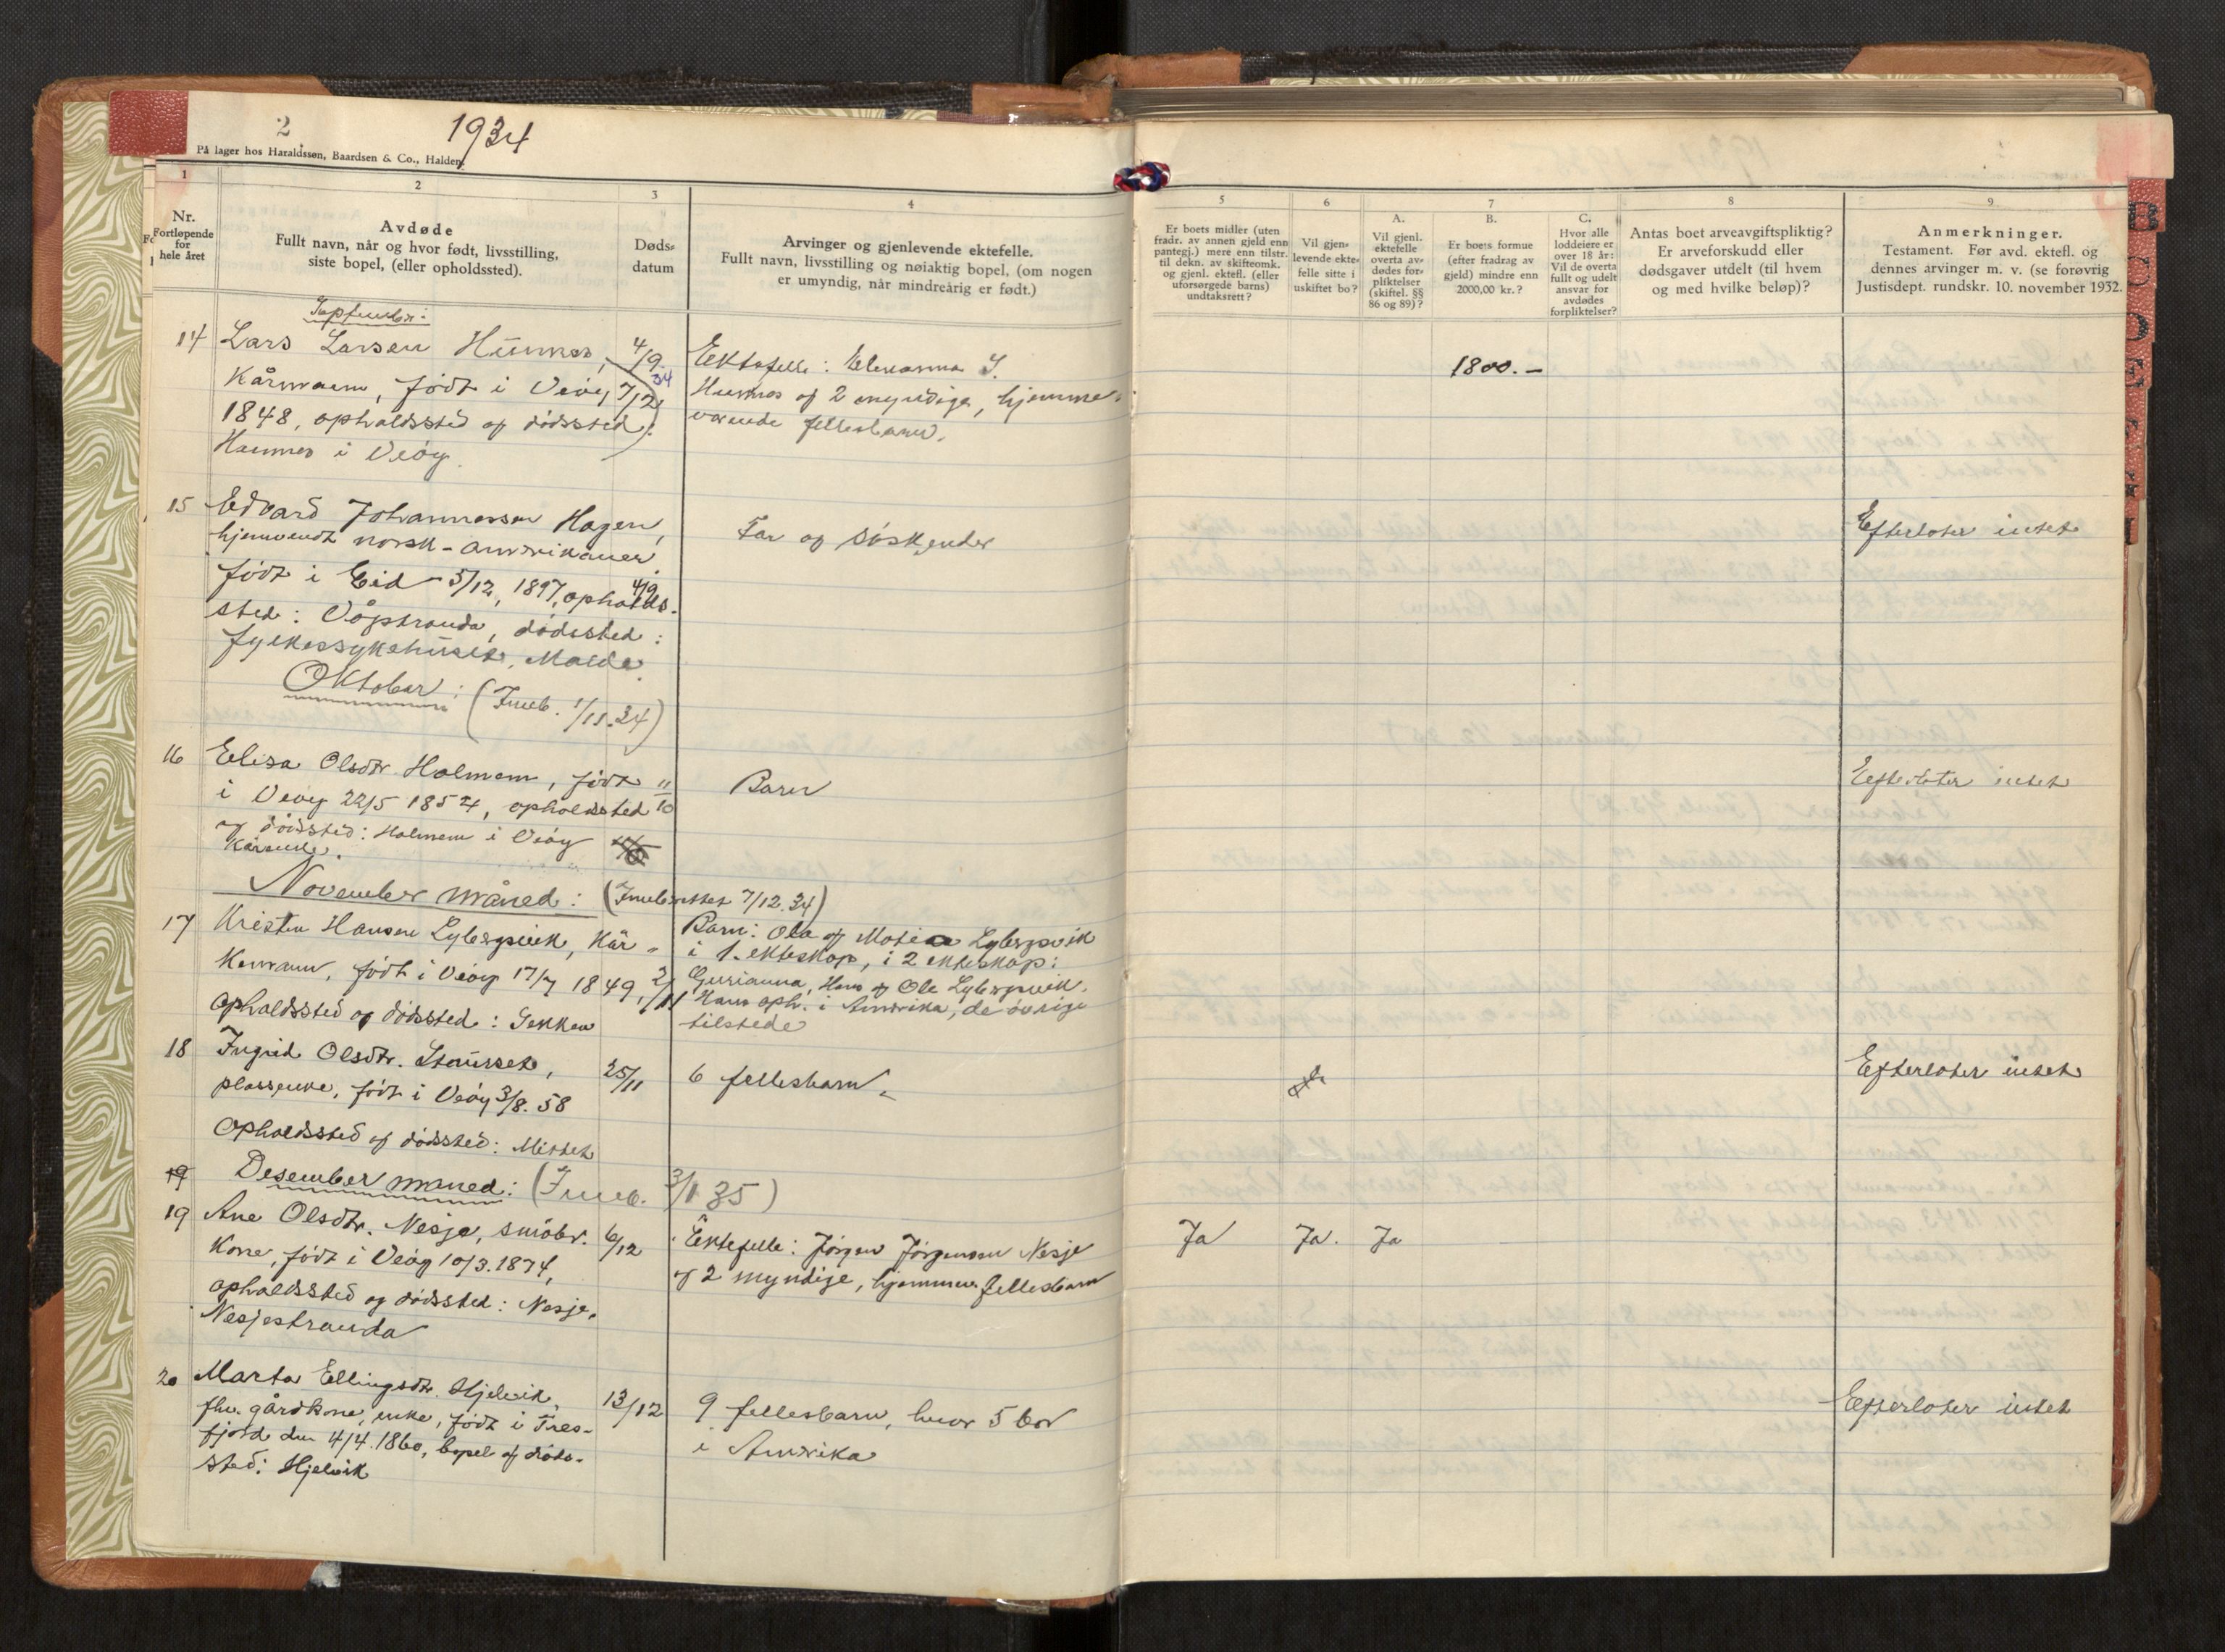 2
1934
På lager hos Haraldssøn, Baardsen & Co., Halden.
1
2
3
4
Nr.
Fortløpende
for
hele året
Avdøde
Fullt navn, når og hvor født, livsstilling,
siste bopel, (eller opholdssted).
Døds-
datum
Arvinger og gjenlevende ektefelle.
Fullt navn, livsstilling og nøiaktig bopel, (om nogen
er umyndig, når mindreårig er født.)
5
6
7
8
9
Er boets midler (uten
fradr. av annen gjeld enn
pantegj.) mere enn tilstr.
til dekn. av skifteomk.
og gjenl. ektefl. (eller
uforsørgede barns)
undtaksrett?
Vil gjen-
levende ekte-
felle sitte i
uskiftet bo?
A.
Vil gjenl.
ektefelle
overta av-
dødes for-
pliktelser
(skiftel. §§
86 og 89)?
B.
Er boets formue
(efter fradrag av
gjeld) mindre enn
2000,00 kr.?
C.
Hvor alle
loddeiere er
over 18 år:
Vil de overta
fullt og udelt
ansvar for
avdødes
forpliktelser?
Antas boet arveavgiftspliktig?
Er arveforskudd eller
dødsgaver utdelt (til hvem
og med hvilke beløp)?
Anmerkninger.
Testament. Før avd. ektefl. og
dennes arvinger m. v. (se forøvrig
Justisdept. rundskr. 10. november 1932.
September:
14 Lars Larsen Hunnes, 4/9
34
Kårmann, født i Veøy 7/12
1848, opholdssted og dødssted:
Hunnes i Veøy.
Ektefelle:
Hunnes og 2 myndige, hjemme-
værende fellesbarn.
1800.-
15 Edvard Johannessen Hagen,
hjemvendt norsk-amerikaner
født i Eid 5/12, 1897, opholds-
4/9
sted: Vågstranda, dødssted:
fylkessykehuset, Molde.
Far og søskender
Efterlater intet
Oktober: (Innb. 1/11.34)
16 Elisa Olsdtr. Holmem, født 11/10
i Veøy 22/5 1854, opholdssted
og dødssted: Holmem i Veøy
Kårenke.
Barn
Efterlater intet
November måned: (Innberettet 7/12.34)
17 Kristen Hansen Lybergsvik, Kår-
Kemann, født i Veøy 17/7 1849, 2/11
Opholdssted og dødssted: Sekken
Barn: Ola og Lybergsvik
i 1. ekteskap, i 2 ekteskap:
Gurianna, Hans og Ole Lybergsvik.
Hans oph. i Amerika, de øvrige
tilstede
18 Ingrid Olsdtr. 25/11
plassenke, født i Veøy 3/8. 58
Opholdssted og dødssted: Mittet
6 fellesbarn.
Efterlater intet
19 Desember måned: (Innb. 3/1 35)
19 Ane Olsdtr. Nesje, småbr. 6/12
Kone, født i Veøy 10/3.1874,
opholdssted og dødssted: Nesje,
Nesjestranda
Ektefelle: Jørgen Jørgensen Nesje
og 2 myndige, hjemmev. fellesbarn
Ja Ja. Ja
20 Marta Ellingsdtr. Hjelvik, 13/12
fhv. gårdkone, enke, født i Tres-
fjord den 4/4.1860, bopel og døds-
sted: Hjelvik
9 fellesbarn, hvor 5 bor
i Amerika
Efterlater intet